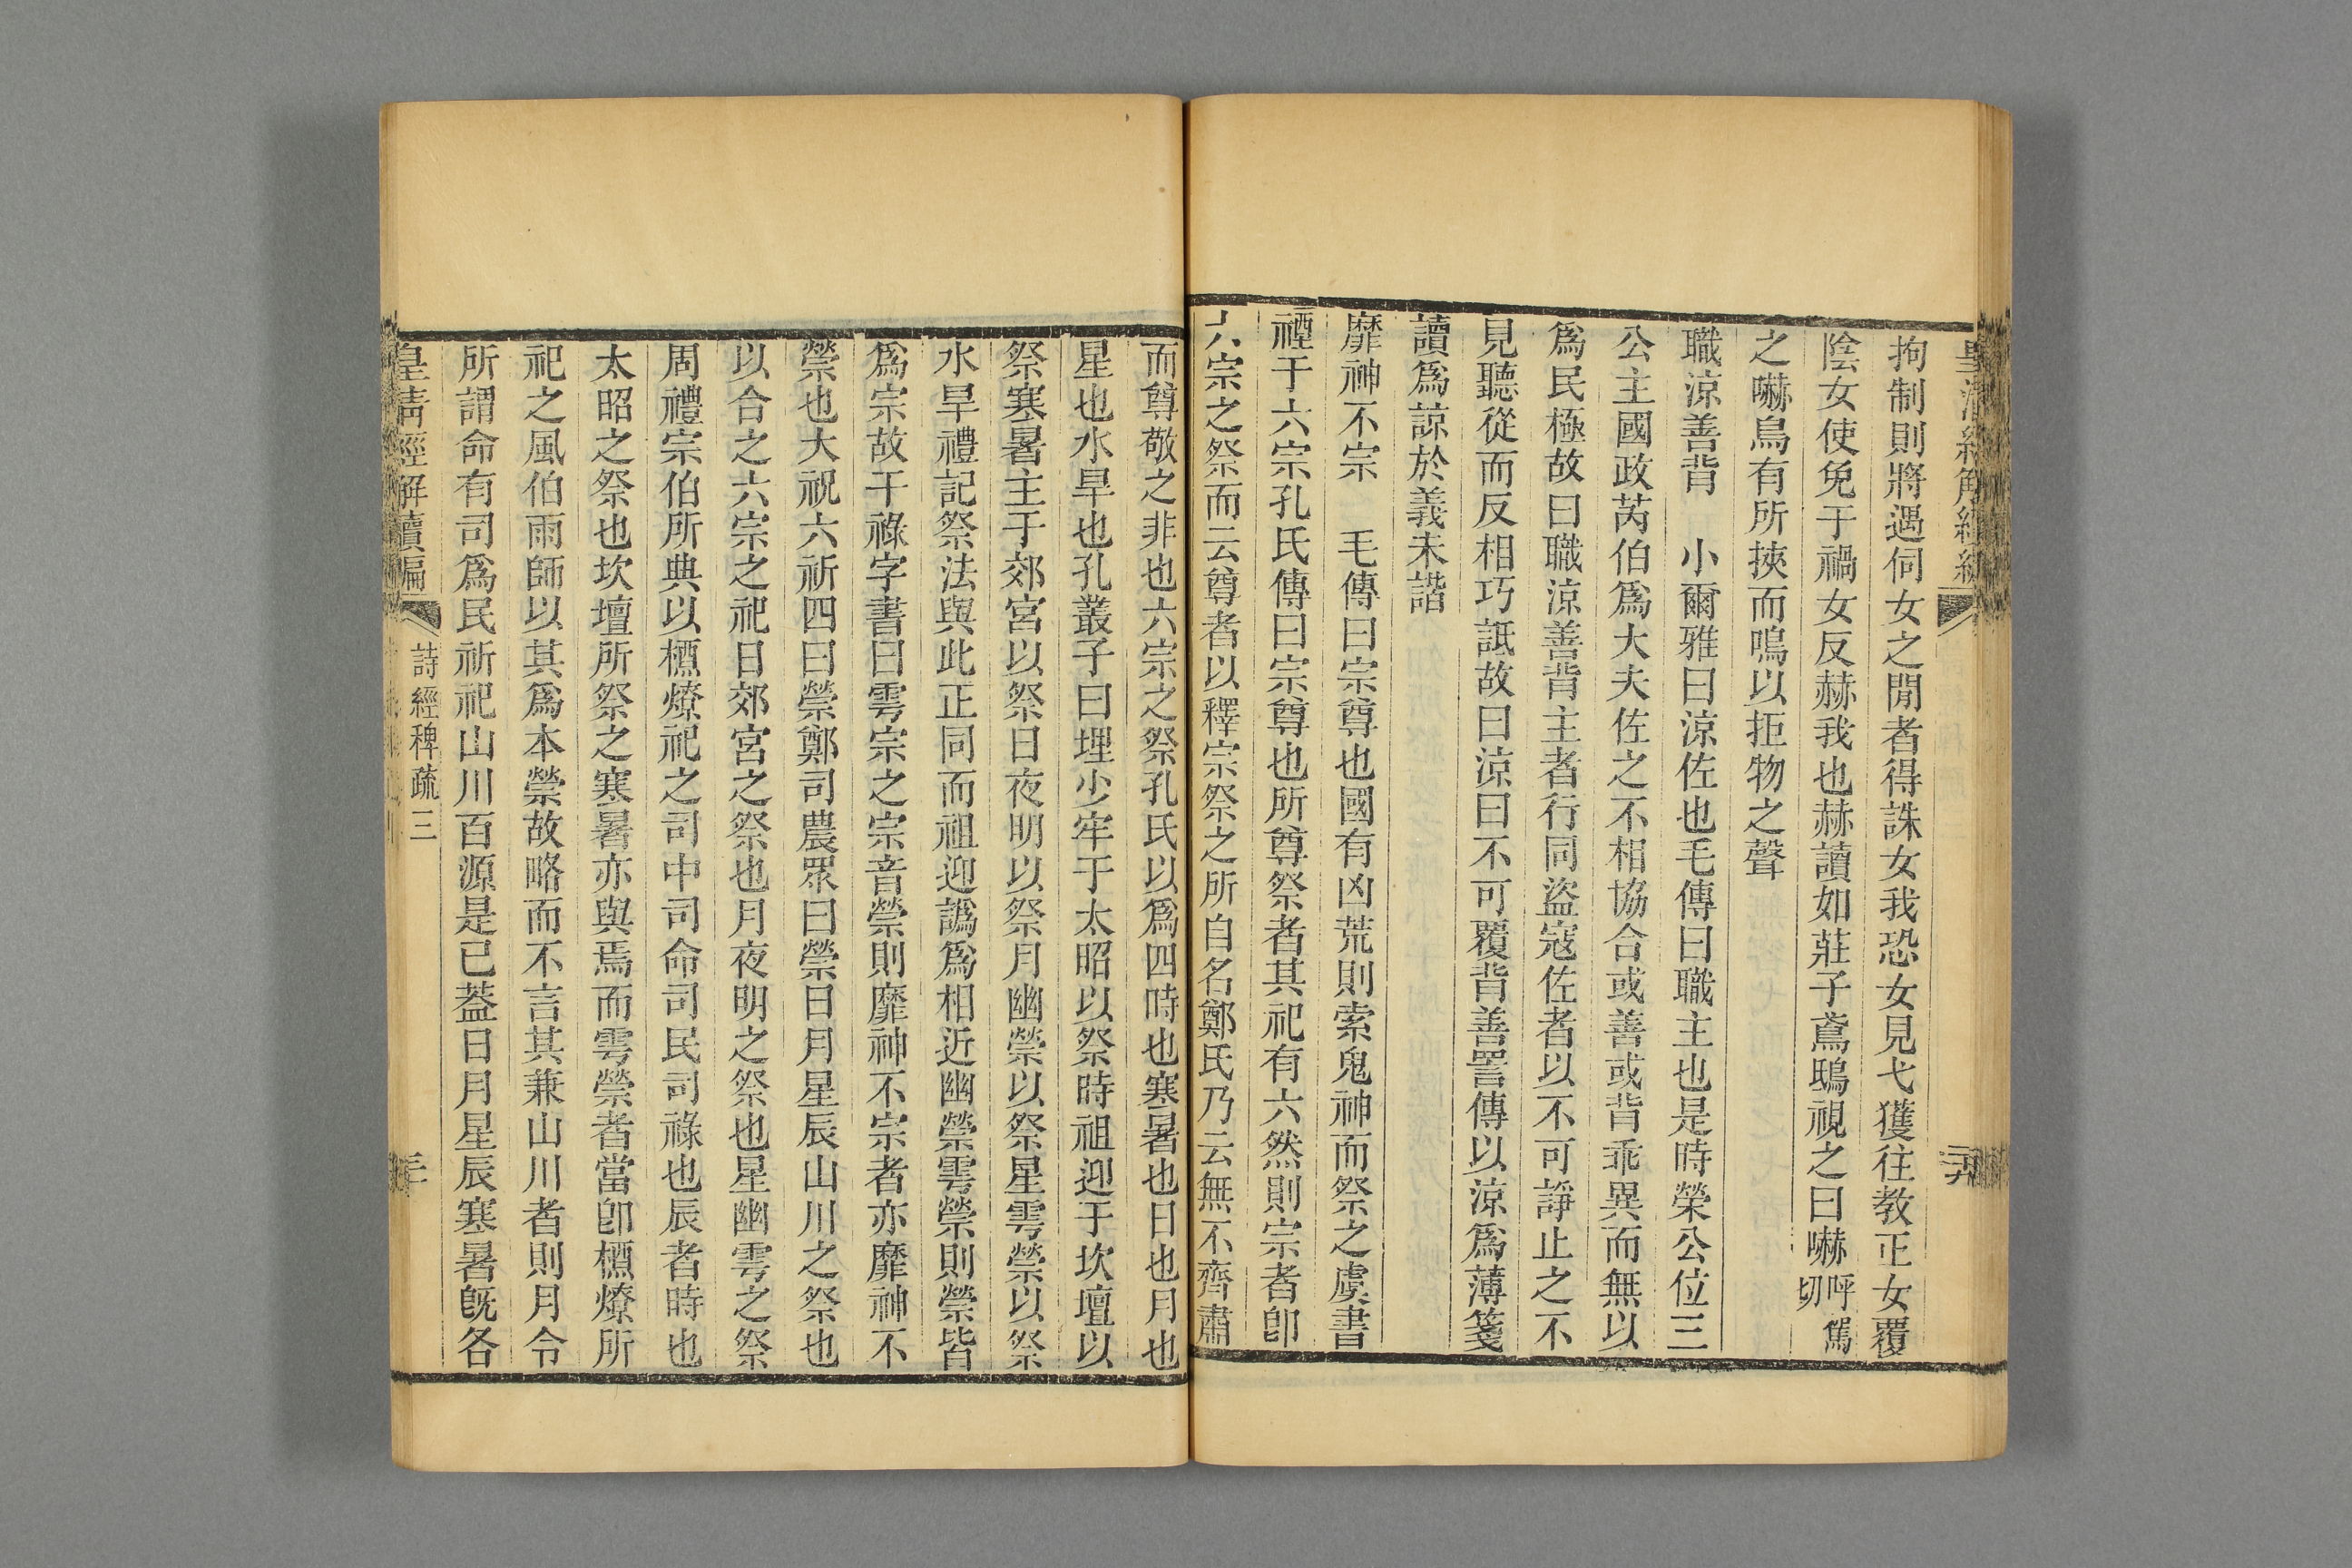 拘制則將遇伺女之閒者得誅女我恐女見弋獲往教正女覆
陰女使免于禍女反赫我也赫讀如莊子鳶鴟視之曰嚇呼駡切
之嚇鳥有所挾而鳴以拒物之聲
職涼善背 小爾雅曰涼佐也毛傳曰職主也是時榮公位三
公主國政芮伯爲大夫佐之不相協合或善或背乖異而無以
爲民極故曰職涼善背主者行同盜寇佐者以不可諍止之不
見聽從而反相巧詆故曰涼曰不可覆背善詈傳以涼爲薄箋
讀爲諒於義未諧
靡神不宗 毛傳曰宗尊也國有凶荒則索鬼神而祭之虞書
禋于六宗孔氏傳曰宗尊也所尊祭者其祀有六然則宗者卽
六宗之祭而云尊者以釋宗祭之所自名鄭氏乃云無不齊肅
而尊敬之非也六宗之祭孔氏以爲四時也寒暑也日也月也
星也水旱也孔叢子曰埋少牢于太昭以祭時祖迎于坎壇以
祭寒暑主于郊宮以祭日夜明以祭月幽禜以祭星雩禜以祭
水旱禮記祭法與此正同而祖迎譌爲相近幽禜雩禜則禜皆
爲宗故干祿字書曰雩宗之宗音禜則靡神不宗者亦靡神不
禜也大祝六祈四曰禜鄭司農眾曰禜日月星辰山川之祭也
以合之六宗之祀日郊宮之祭也月夜明之祭也星幽雩之祭
周禮宗伯所典以槱燎祀之司中司命司民司祿也辰者時也
太昭之祭也坎壇所祭之寒暑亦與焉而雩禜者當卽槱燎所
祀之風伯雨師以其爲本禜故略而不言其兼山川者則月令
所謂命有司爲民祈祀山川百源是已葢日月星辰寒暑旣各
皇清經解續編
詩經稗疏三
三